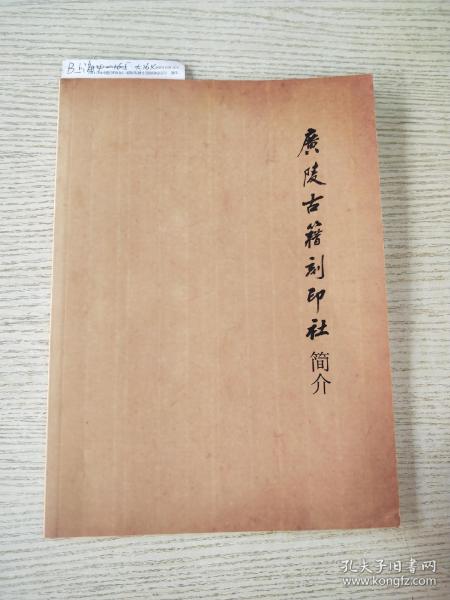 廣陵古籍刻印社
简介
孔夫子旧书网
www.kongfz.com